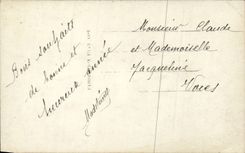 Bons souhaits
de bonne et
heureuse année
Monsieur Claude
et Mademoiselle
Jacqueline